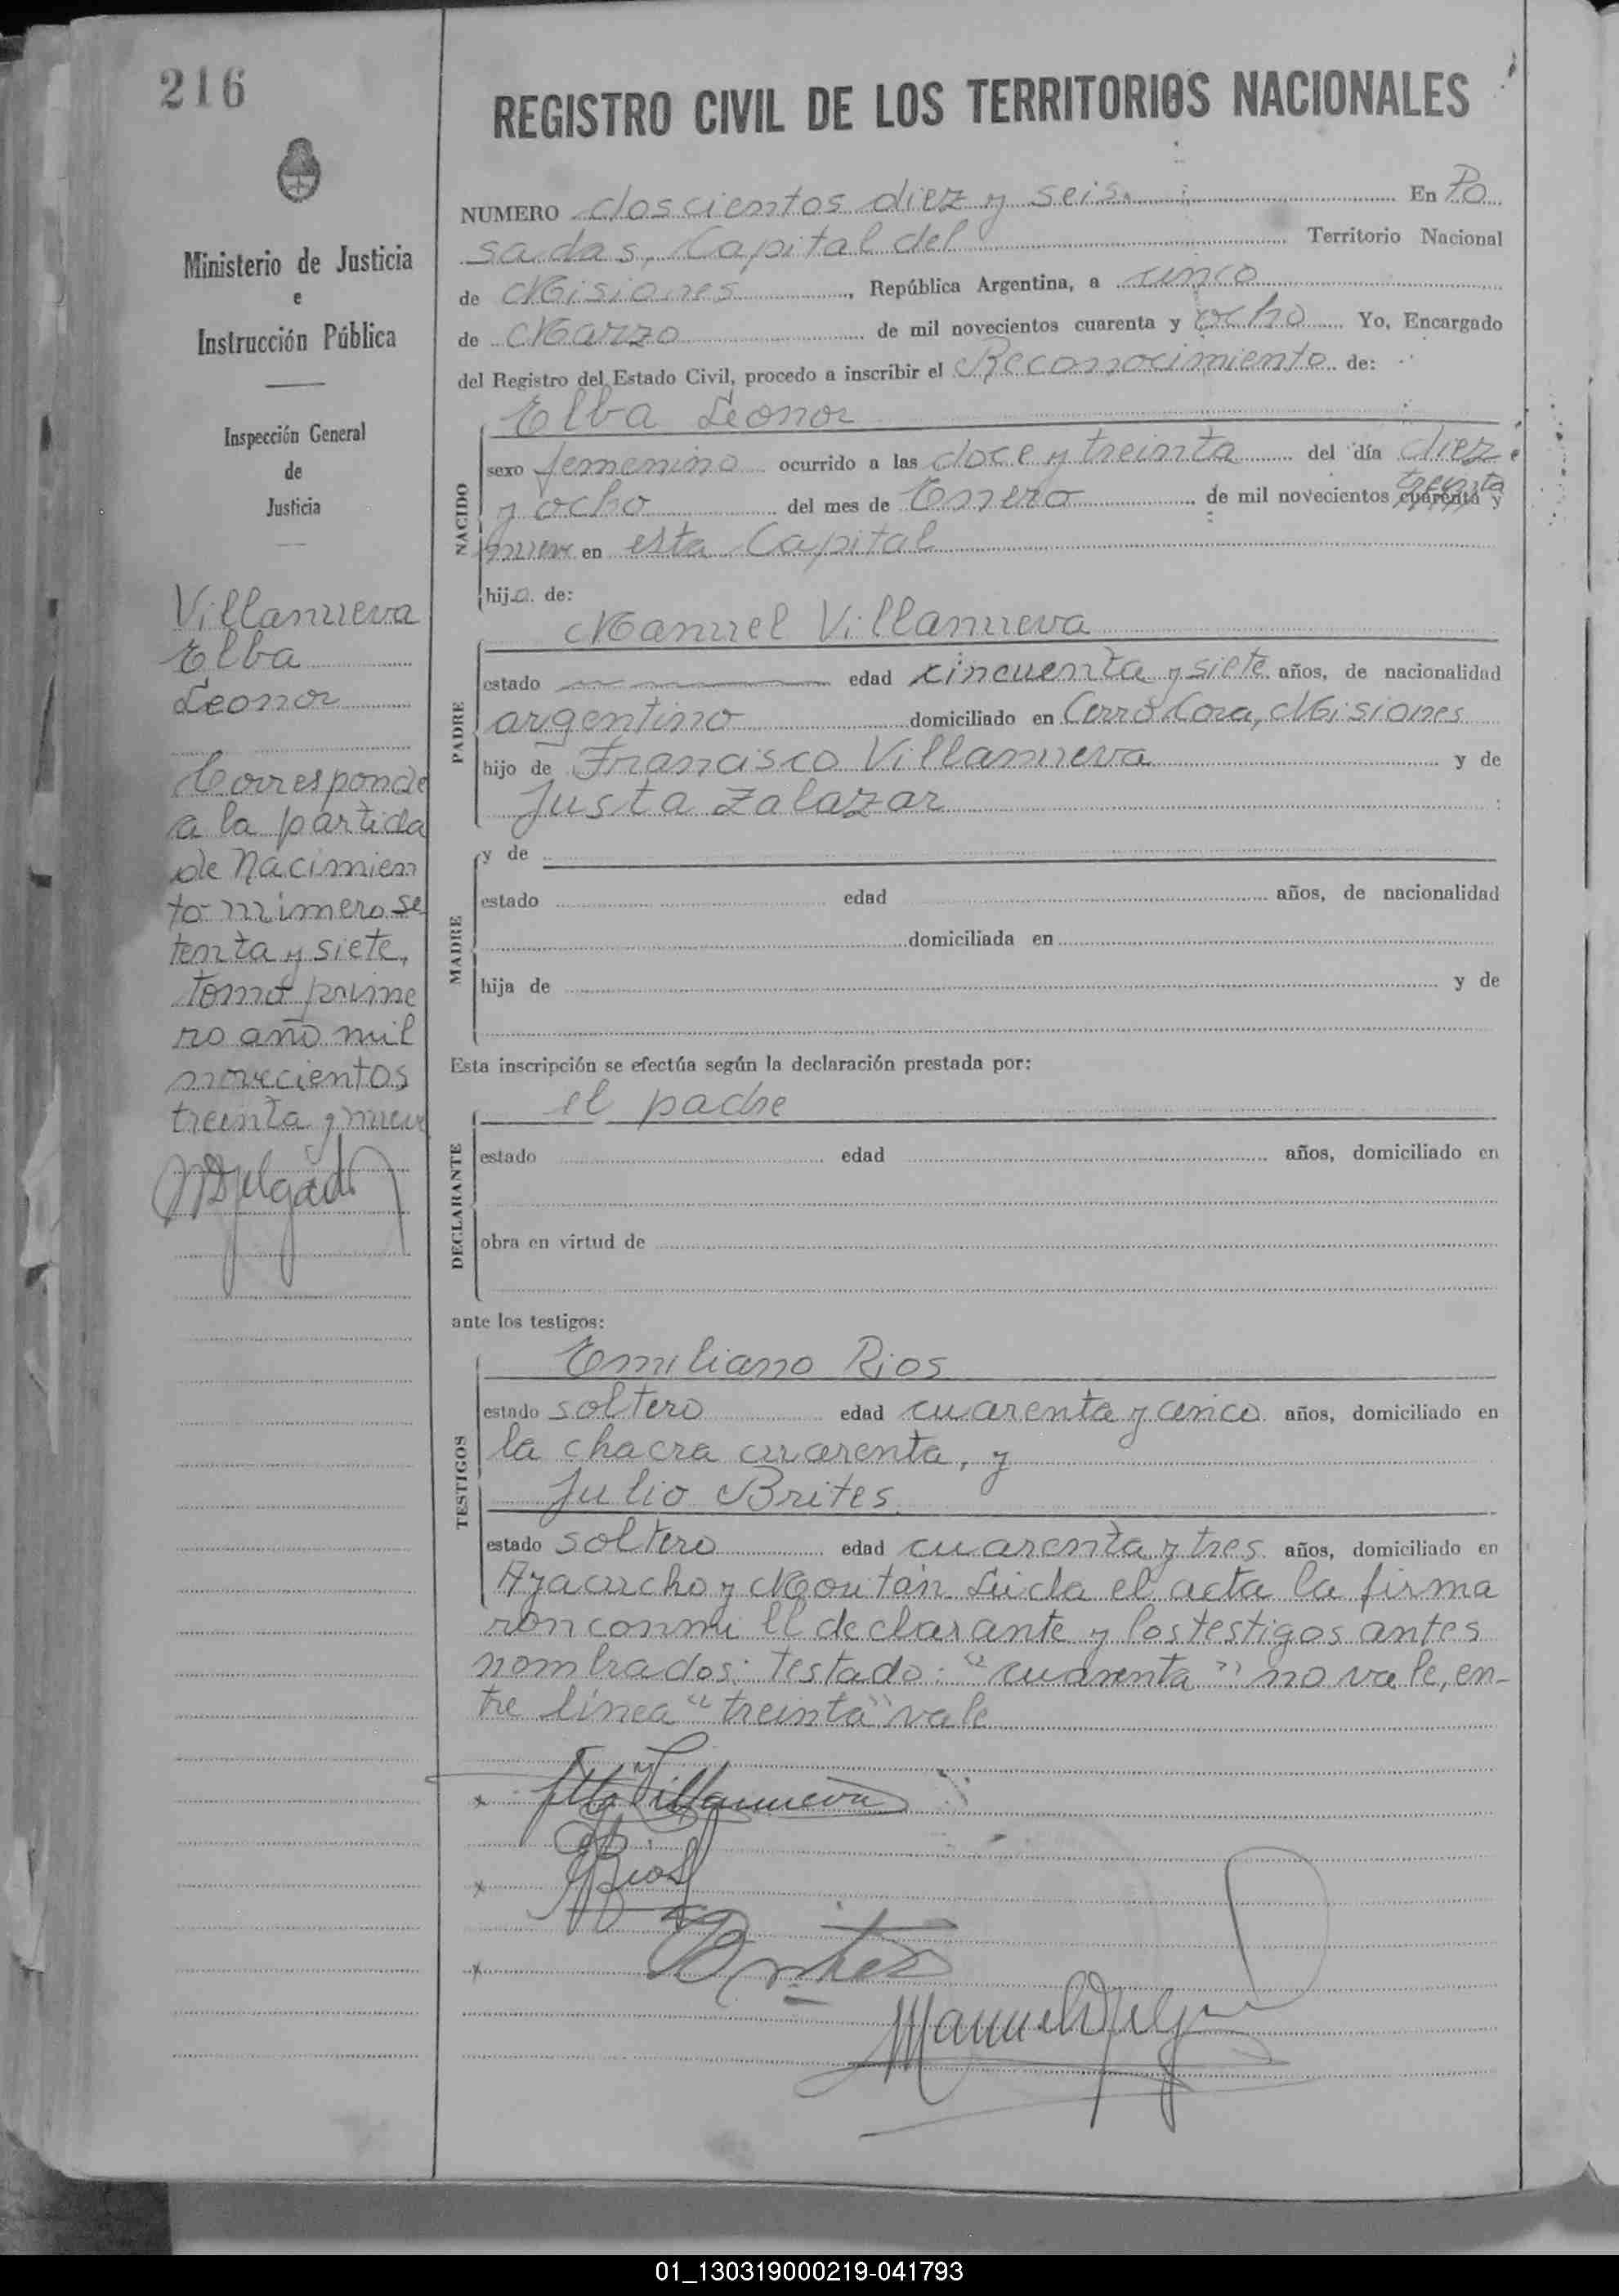 216
REGISTRO CIVIL DE LOS TERRITORIOS NACIONALES
Ministerio de Justicia
e
Instrucción Pública
Inspección General
de
Justicia
Villanueva
Elba
Leonor
Corresponde
a la partida
de Nacimien
to número se
tenta y siete,
tomo prime
ro año mil
novecientos
treinta y nueve
MDelgado
NUMERO doscientos diez y seis. En Po
sadas, Capital del Territorio Nacional
de Misiones, República Argentina, a cinco
de Marzo de mil novecientos cuarenta y ocho Yo, Encargado
del Registro del Estado Civil, procedo a inscribir el Reconocimiento de:
NACIDO
Elba Leonor
sexo femenino ocurrido a las doce y treinta del día diez
y ocho del mes de Enero de mil novecientos cuarenta treinta y
nueve en esta Capital
hija de:
PADRE
Manuel Villanueva
estado edad cincuenta y siete años, de nacionalidad
argentino domiciliado en Cerro Cora, Misiones
hijo de Francisco Villanueva y de
Justa Zalazar
MADRE
y de
estado edad años, de nacionalidad
domiciliada en
hija de y de
Esta inscripción se efectúa según la declaración prestada por:
DECLARANTE
el padre
estado edad años, domiciliado en
obra en virtud de
ante los testigos:
TESTIGOS
Emiliano Rios
estado soltero edad cuarenta y cinco años, domiciliado en
la chacra cuarenta, y
Julio Brites
estado soltero edad cuarenta y tres años, domiciliado en
Ayacucho y Moután. Leida el acta la firma
ron conmi el declarante y los testigos antes
nombrados: testado: "cuarenta" no vale, en-
tre línea "treinta" vale
Villanueva
Rios
Brites
Manuel Delgado
01_130319000219-041793